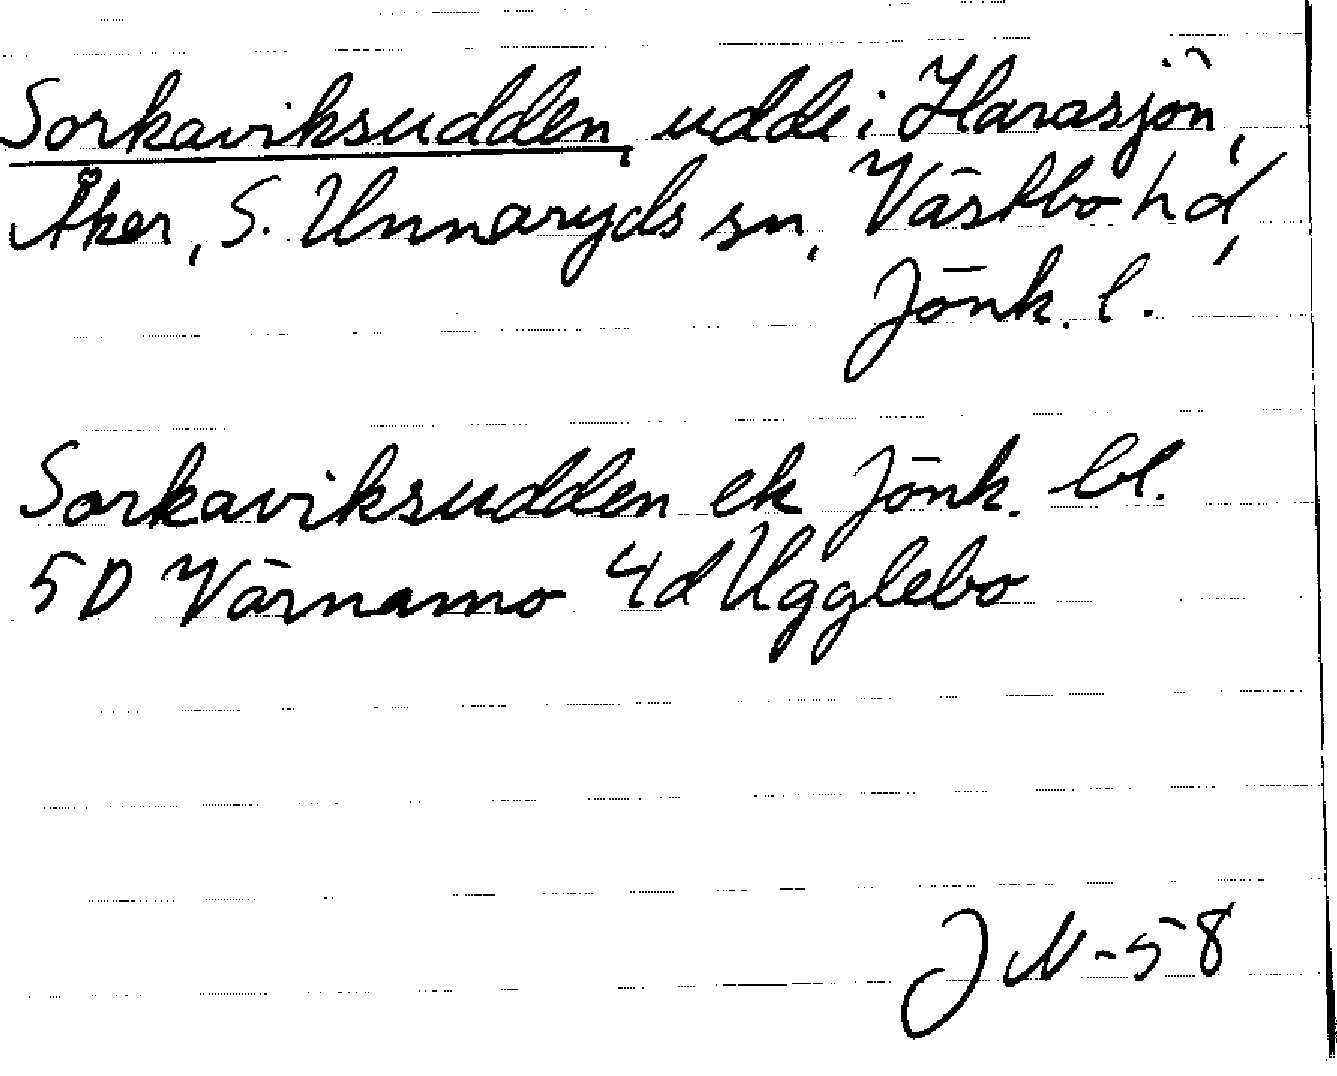 Sorkaviksudden, udde i Harasjön,
Åker, S. Unnaryds sn, Västbo hd,
Jönk. l.
Sorkaviksudden ek Jönk. bl.
5D Värnamo 4d Ugglebo
JN-58